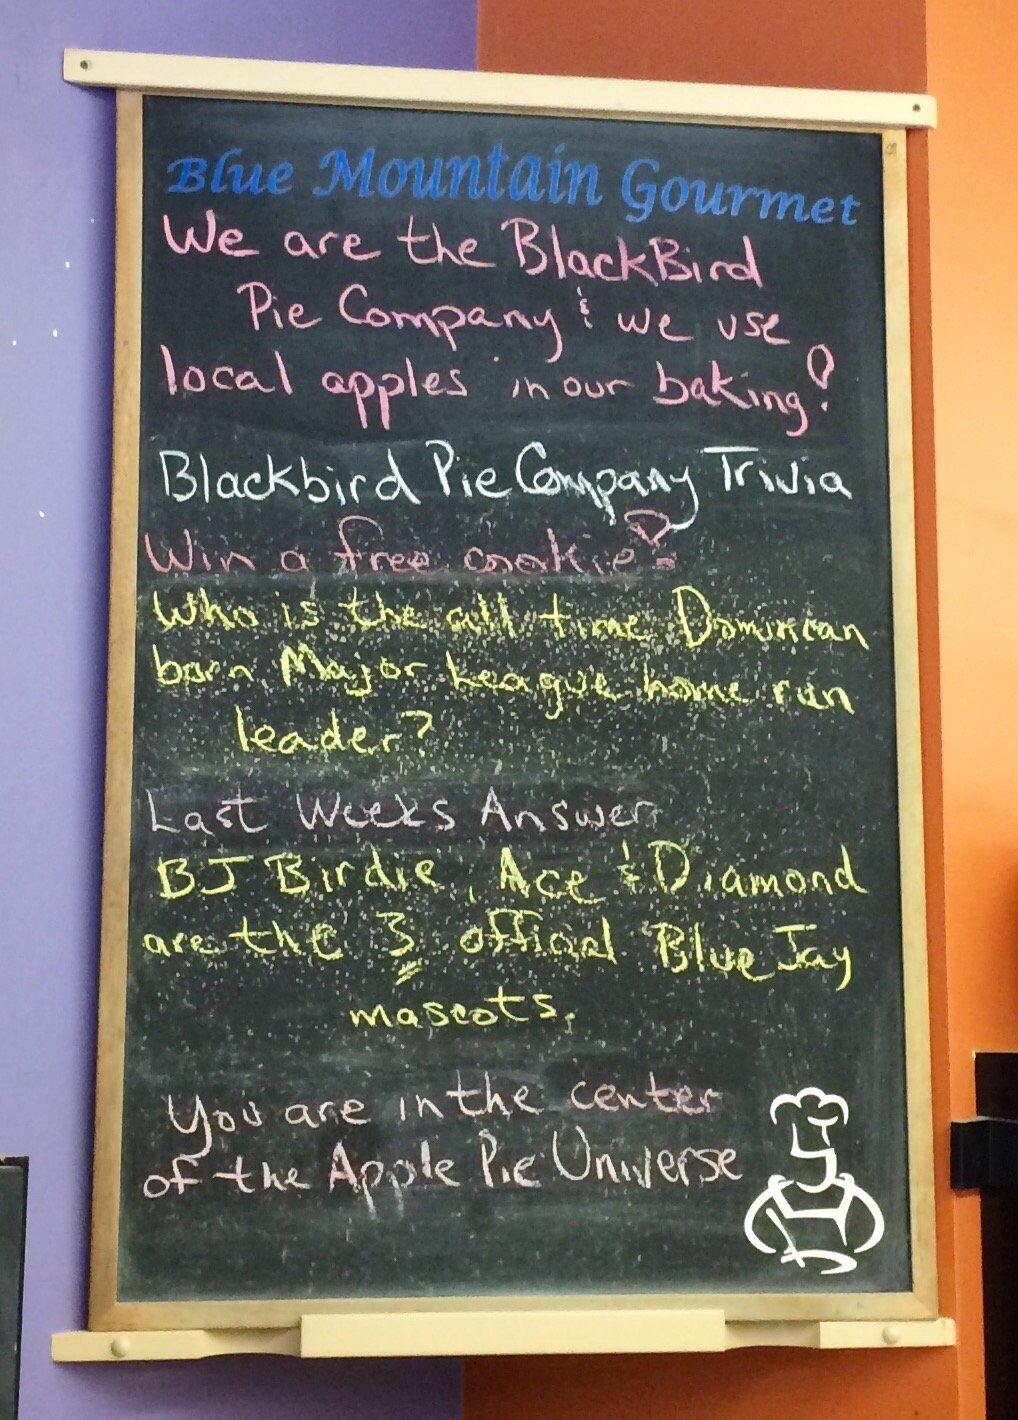 Blue Mountain Gourmet
We are the BlackBird
Pie Company & we use
local apples in our baking!
Blackbird Pie Company Trivia
Win a free cookie!
Who is the all time Dominican
born Major League home run
leader?
Last Weeks Answer
BJ Birdie, Ace & Diamond
are the 3 official Blue Jay
mascots.
You are in the center
of the Apple Pie Universe